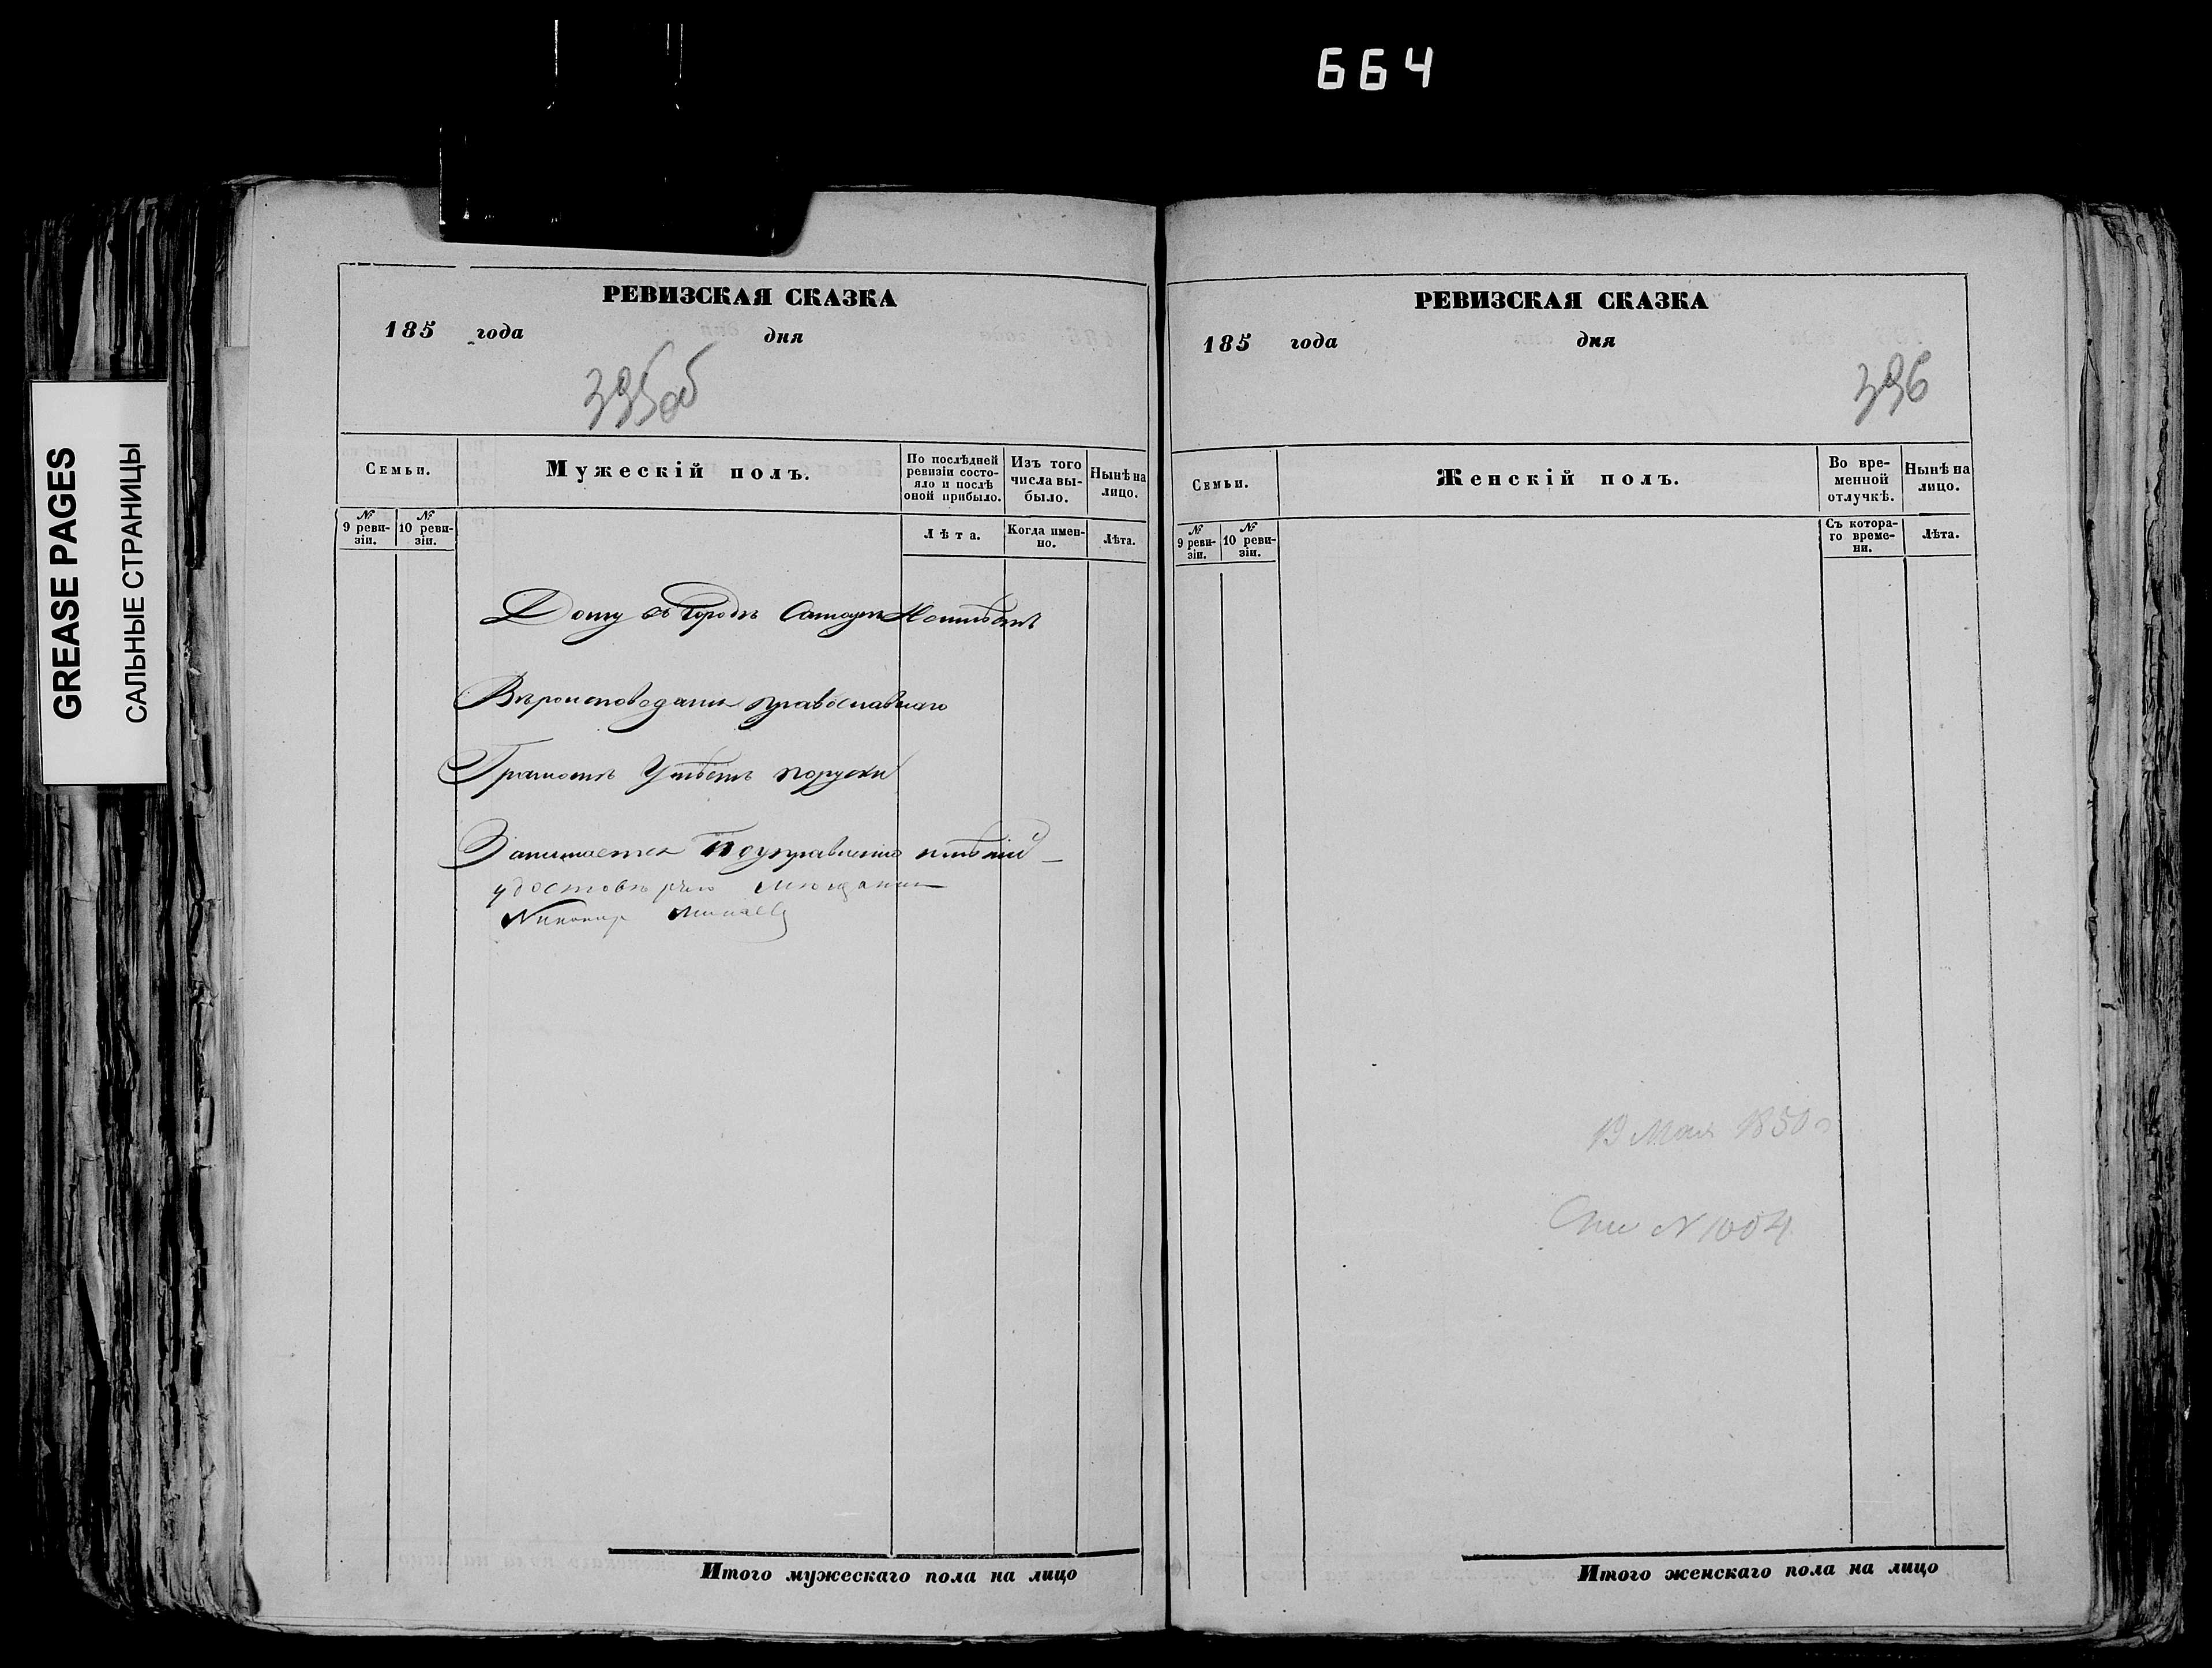 664
GREASE PAGES
САЛЬНЫЕ СТРАНИЦЫ
РЕВИЗСКАЯ СКАЗКА
185 года дня
395об
Семьи.
Мужескій полъ.
По послѣдней ревизіи состояло и послѣ оной прибыло.
Изъ того числа выбыло.
Нынѣ на лицо.
№ 9 ревизіи.
№ 10 ревизіи.
Лѣта.
Когда именно.
Лѣта.
Дому въ городѣ Самаре Неимѣетъ
Вѣроисповедания православнаго
Грамотѣ Умѣетъ поруски
Занимается Поуправлению имѣний
удостовѣряю мѣщанин
Никонир Минаевъ
Итого мужескаго пола на лицо
РЕВИЗСКАЯ СКАЗКА
185 года дня
396
Семьи.
Женскій полъ.
Во временной отлучкѣ.
Нынѣ на лицо.
№ 9 ревизіи.
№ 10 ревизіи.
Съ котораго времени.
Лѣта.
Мая 1850 г
N 1004
Итого женскаго пола на лицо